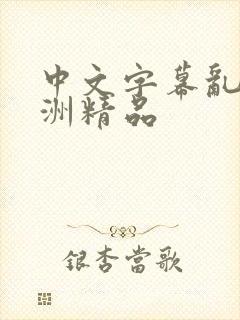 中文字幕亂
洲精品
銀杏當歌